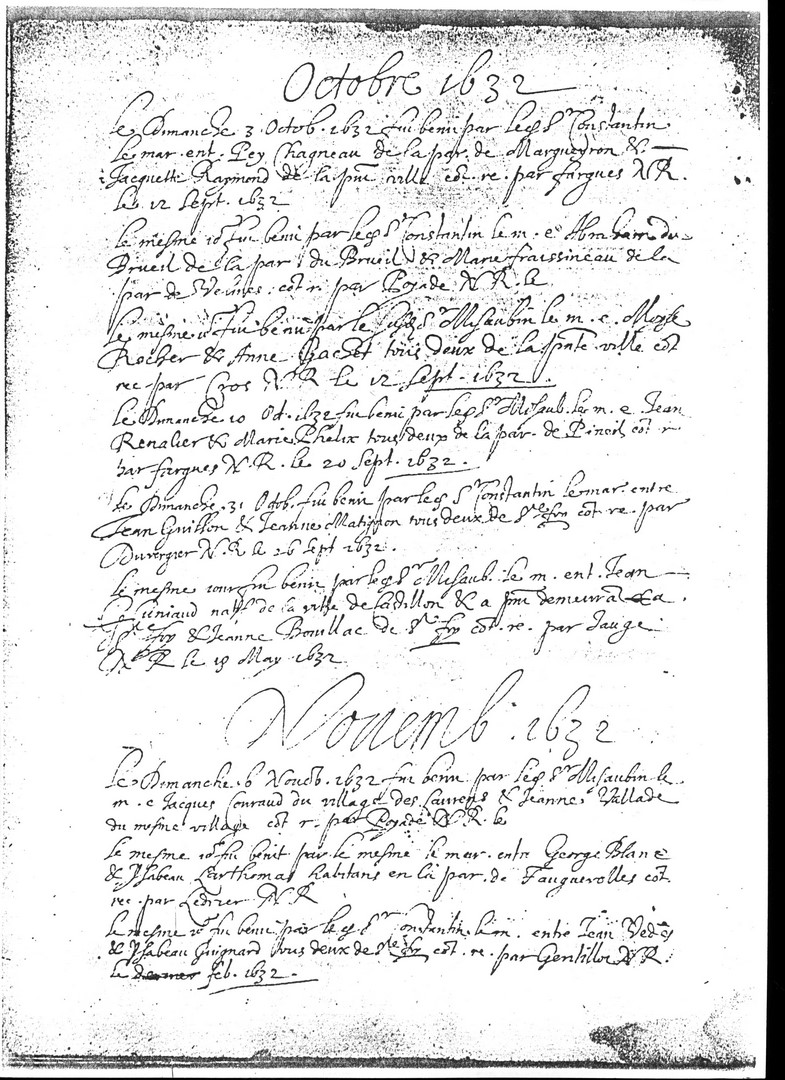 Octobre 1632
Le Dimanche 3 Octob. 1632 fut beni par led Sr Constantin
le mar. ent. Pey Chagneau de la par. de Margueyron &
Jacquette Raymond de la pnt ville cot. re. par fargues N R.
le 12 Sept. 1632
Le mesme jor fut beni par led Sr Constantin le m. e. Abraham du
Brueil de la par. du Brueil & Marie fraissineau de la
par de cot. r. par Pojade N. R. le
Le mesme jr fut beni par le Sr Misaubin le m. e. Moyse
Rocher & Anne Gachet tous deux de la pnte ville cot
rec. par Cros N. R le 12 Sept. 1632.
Le Dimanche 10 Oct. 1632 fut beni par led Sr Misaub. le m. e. Jean
Renalier & Marie Phelix tous deux de la par. de Pineil cot r
par fargues N. R. le 20 Sept. 1632.
Le Dimanche 31 Octob. fut beni par led Sr Constantin le mar. entre
Jean Guithon & Jeanne Matignon tous deux de Ste foy cot. re. par
Duvergier N. R le 26 Sept 1632.
Le mesme jour fut beni par led Sr Misaub. le m. ent. Jean
natif de la ville de Castillon & a pnt demeurāt a
Ste foy & Jeanne Bouillac de Ste foy cot. re. par Jauge
N. R le 19 May 1632
Nouemb. 1632
Le Dimanche 6 Nouēb. 1632 fut beni par led Sr Misaubin le
m. e Jacques Couraud du village des Laurens & Jeanne Vallade
du mesme village cot r. par Pojade N. R. le
Le mesme jor fut benit par le mesme le mar. entre George Blanc
& Ysabeau Barthomas habitans en la par. de Fauguerolles cot.
rec. par Ledrier N. R
Le mesme jor fut beni par led Sr Constantin le m. entre Jean Vedes
& Ysabeau Guignard tous deux de Ste foy cot. re. par Gentillot N R.
le feb. 1632.